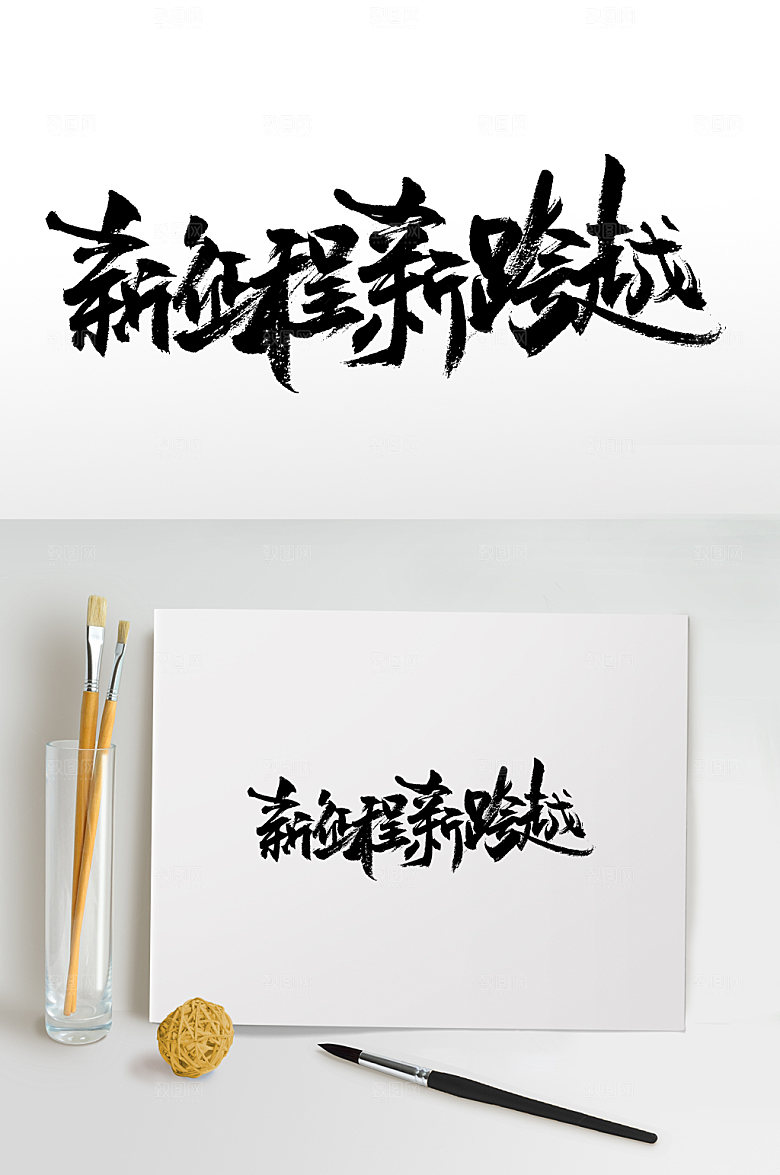 新征程新跨越
新征程新跨越